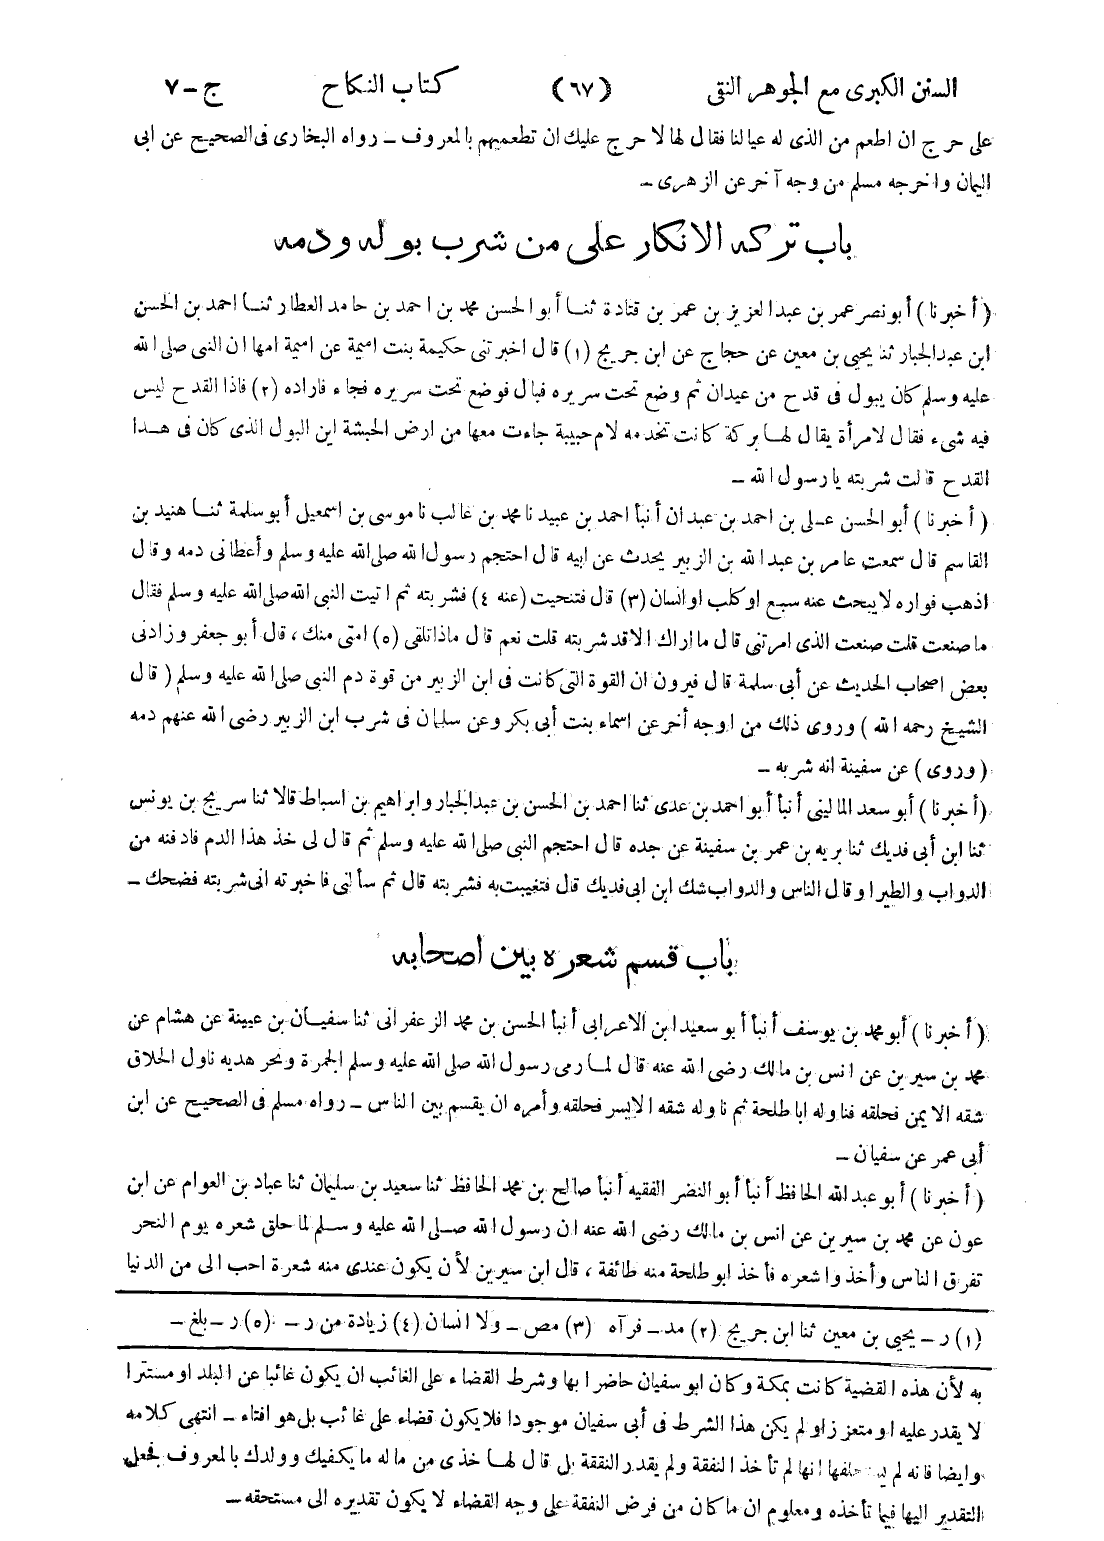 السنن الكبرى مع الجوهر النقى (٦٧) كتاب النكاح ج – ٧
على حرج ان اطعم من الذى له عيالنا فقال لها لا حرج عليك ان تطعميهم بالمعروف – رواه البخارى فى الصحيح عن ابى
اليمان واخرجه مسلم من وجه آخر عن الزهرى –
باب تركه الانكار على من شرب بوله ودمه
(أخبرنا) أبو نصر عمر بن عبد العزيز بن عمر بن قتادة ثنا أبو الحسن محمد بن احمد بن حامد العطار ثنا احمد بن الحسن
ابن عبد الجبار ثنا يحيى بن معين عن حجاج عن ابن جريج (١) قال اخبرتنى حكيمة بنت اميمة عن اميمة امها ان النبى صلى الله
عليه وسلم كان يبول فى قدح من عيدان ثم وضع تحت سريره فبال فوضع تحت سريره فجاء فاراده (٢) فاذا القدح ليس
فيه شىء فقال لامرأة يقال لها بركة كانت تخدمه لام حبيبة جاءت معها من ارض الحبشة اين البول الذى كان فى هذا
القدح قالت شربته يا رسول الله –
(أخبرنا) أبو الحسن على بن احمد بن عبدان أنبأ احمد بن عبيد نا محمد بن غالب نا موسى بن اسمعيل أبو سلمة ثنا هنيد بن
القاسم قال سمعت عامر بن عبد الله بن الزبير يحدث عن ابيه قال احتجم رسول الله صلى الله عليه وسلم وأعطانى دمه وقال
اذهب فواره لا يبحث عنه سبع او كلب او انسان (٣) قال فتنحيت (عنه ٤) فشربته ثم اتيت النبى صلى الله عليه وسلم فقال
ما صنعت قلت صنعت الذى امرتنى قال ما اراك الا قد شربته قلت نعم قال ماذا تلقى (٥) امتى منك ، قال أبو جعفر وزادنى
بعض اصحاب الحديث عن أبى سلمة قال فيرون ان القوة التى كانت فى ابن الزبير من قوة دم النبى صلى الله عليه وسلم (قال
الشيخ رحمه الله) وروى ذلك من اوجه أخر عن اسماء بنت أبى بكر وعن سلمان فى شرب ابن الزبير رضى الله عنهم دمه
(وروى) عن سفينة انه شربه –
(أخبرنا) أبو سعد المالينى أنبأ أبو احمد بن عدى ثنا احمد بن الحسن بن عبد الجبار وابراهيم بن اسباط قالا ثنا سريج بن يونس
ثنا ابن أبى فديك ثنا بريه بن عمر بن سفينة عن جده قال احتجم النبى صلى الله عليه وسلم ثم قال لى خذ هذا الدم فادفنه من
الدواب والطير او قال الناس والدواب شك ابن ابى فديك قال فتغيبت به فشربته قال ثم سألنى فاخبرته انى شربته فضحك –
باب قسم شعره بين اصحابه
(أخبرنا) أبو محمد بن يوسف أنبأ أبو سعيد ابن الاعرابى أنبأ الحسن بن محمد الزعفرانى ثنا سفيان بن عيينة عن هشام عن
محمد بن سيرين عن انس بن مالك رضى الله عنه قال لما رمى رسول الله صلى الله عليه وسلم الجمرة ونحر هديه ناول الحلاق
شقه الايمن فحلقه فناوله ابا طلحة ثم ناوله شقه الايسر فحلقه وأمره ان يقسم بين الناس – رواه مسلم فى الصحيح عن ابن
أبى عمر عن سفيان –
(أخبرنا) أبو عبد الله الحافظ أنبأ أبو النضر الفقيه أنبأ صالح بن محمد الحافظ ثنا سعيد بن سليمان ثنا عباد بن العوام عن ابن
عون عن محمد بن سيرين عن انس بن مالك رضى الله عنه ان رسول الله صلى الله عليه وسلم لما حلق شعره يوم النحر
تفرق الناس وأخذوا شعره فأخذ ابو طلحة منه طائفة ، قال ابن سيرين لأن يكون عندى منه شعرة احب الى من الدنيا
(١) ر – يحيى بن معين ثنا ابن جريج (٢) مد – فرآه (٣) مص – ولا انسان (٤) زيادة من ر – (٥) ر – بلغ –
به لأن هذه القضية كانت بمكة وكان ابو سفيان حاضرا بها وشرط القضاء على الغائب ان يكون غائبا عن البلد او مستترا
لا يقدر عليه او متعززا ولم يكن هذا الشرط فى أبى سفيان موجودا فلا يكون قضاء على غائب بل هو افتاء – انتهى كلامه
وايضا فانه لم يستحلفها انها لم تأخذ النفقة ولم يقدر النفقة بل قال لها خذى من ماله ما يكفيك وولدك بالمعروف فجعل
التقدير اليها فيما تأخذه ومعلوم ان ما كان من فرض النفقة على وجه القضاء لا يكون تقديره الى مستحقه –